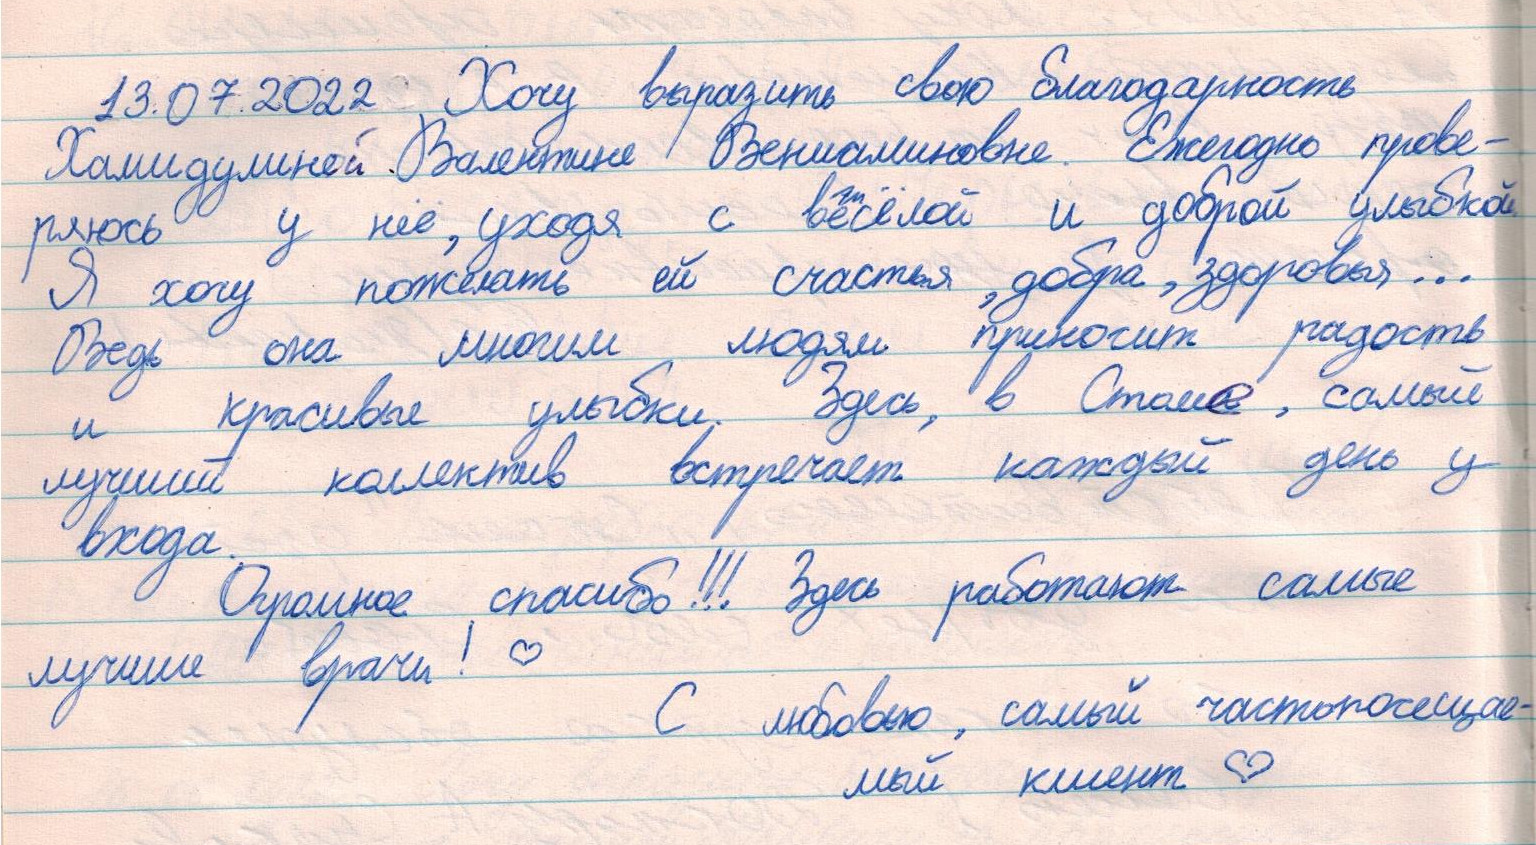 13.07.2022 Хочу выразить свою благодарность
Хамидулиной Валентине Вениаминовне. Ежегодно прове-
ряюсь у неё, уходя с весёлой и доброй улыбкой
Я хочу пожелать ей счастья, добра, здоровья...
Ведь она многим людям приносит радость
и красивые улыбки. Здесь, в Стоме, самый
лучший коллектив встречает каждый день у
входа.
Огромное спасибо!!! Здесь работают самые
лучшие врачи! ♡
С любовью, самый частопосещае-
мый клиент ♡